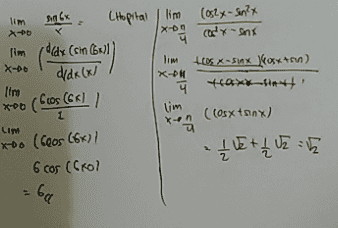 lim x→0 sin 6x / x = (Hopital)
lim x→0 (d/dx (sin (6x))) / d/dx (x)
lim x→0 (6 cos (6x) / 1)
lim x→0 (6 cos (6x))
6 cos (6×0)
= 6
lim x→π/4 cos²x - sin²x / cos x - sin x
lim x→π/4 (cos x - sin x)(cos x + sin x) / cos x - sin x
lim x→π/4 (cos x + sin x)
= 1/2 √2 + 1/2 √2 = √2